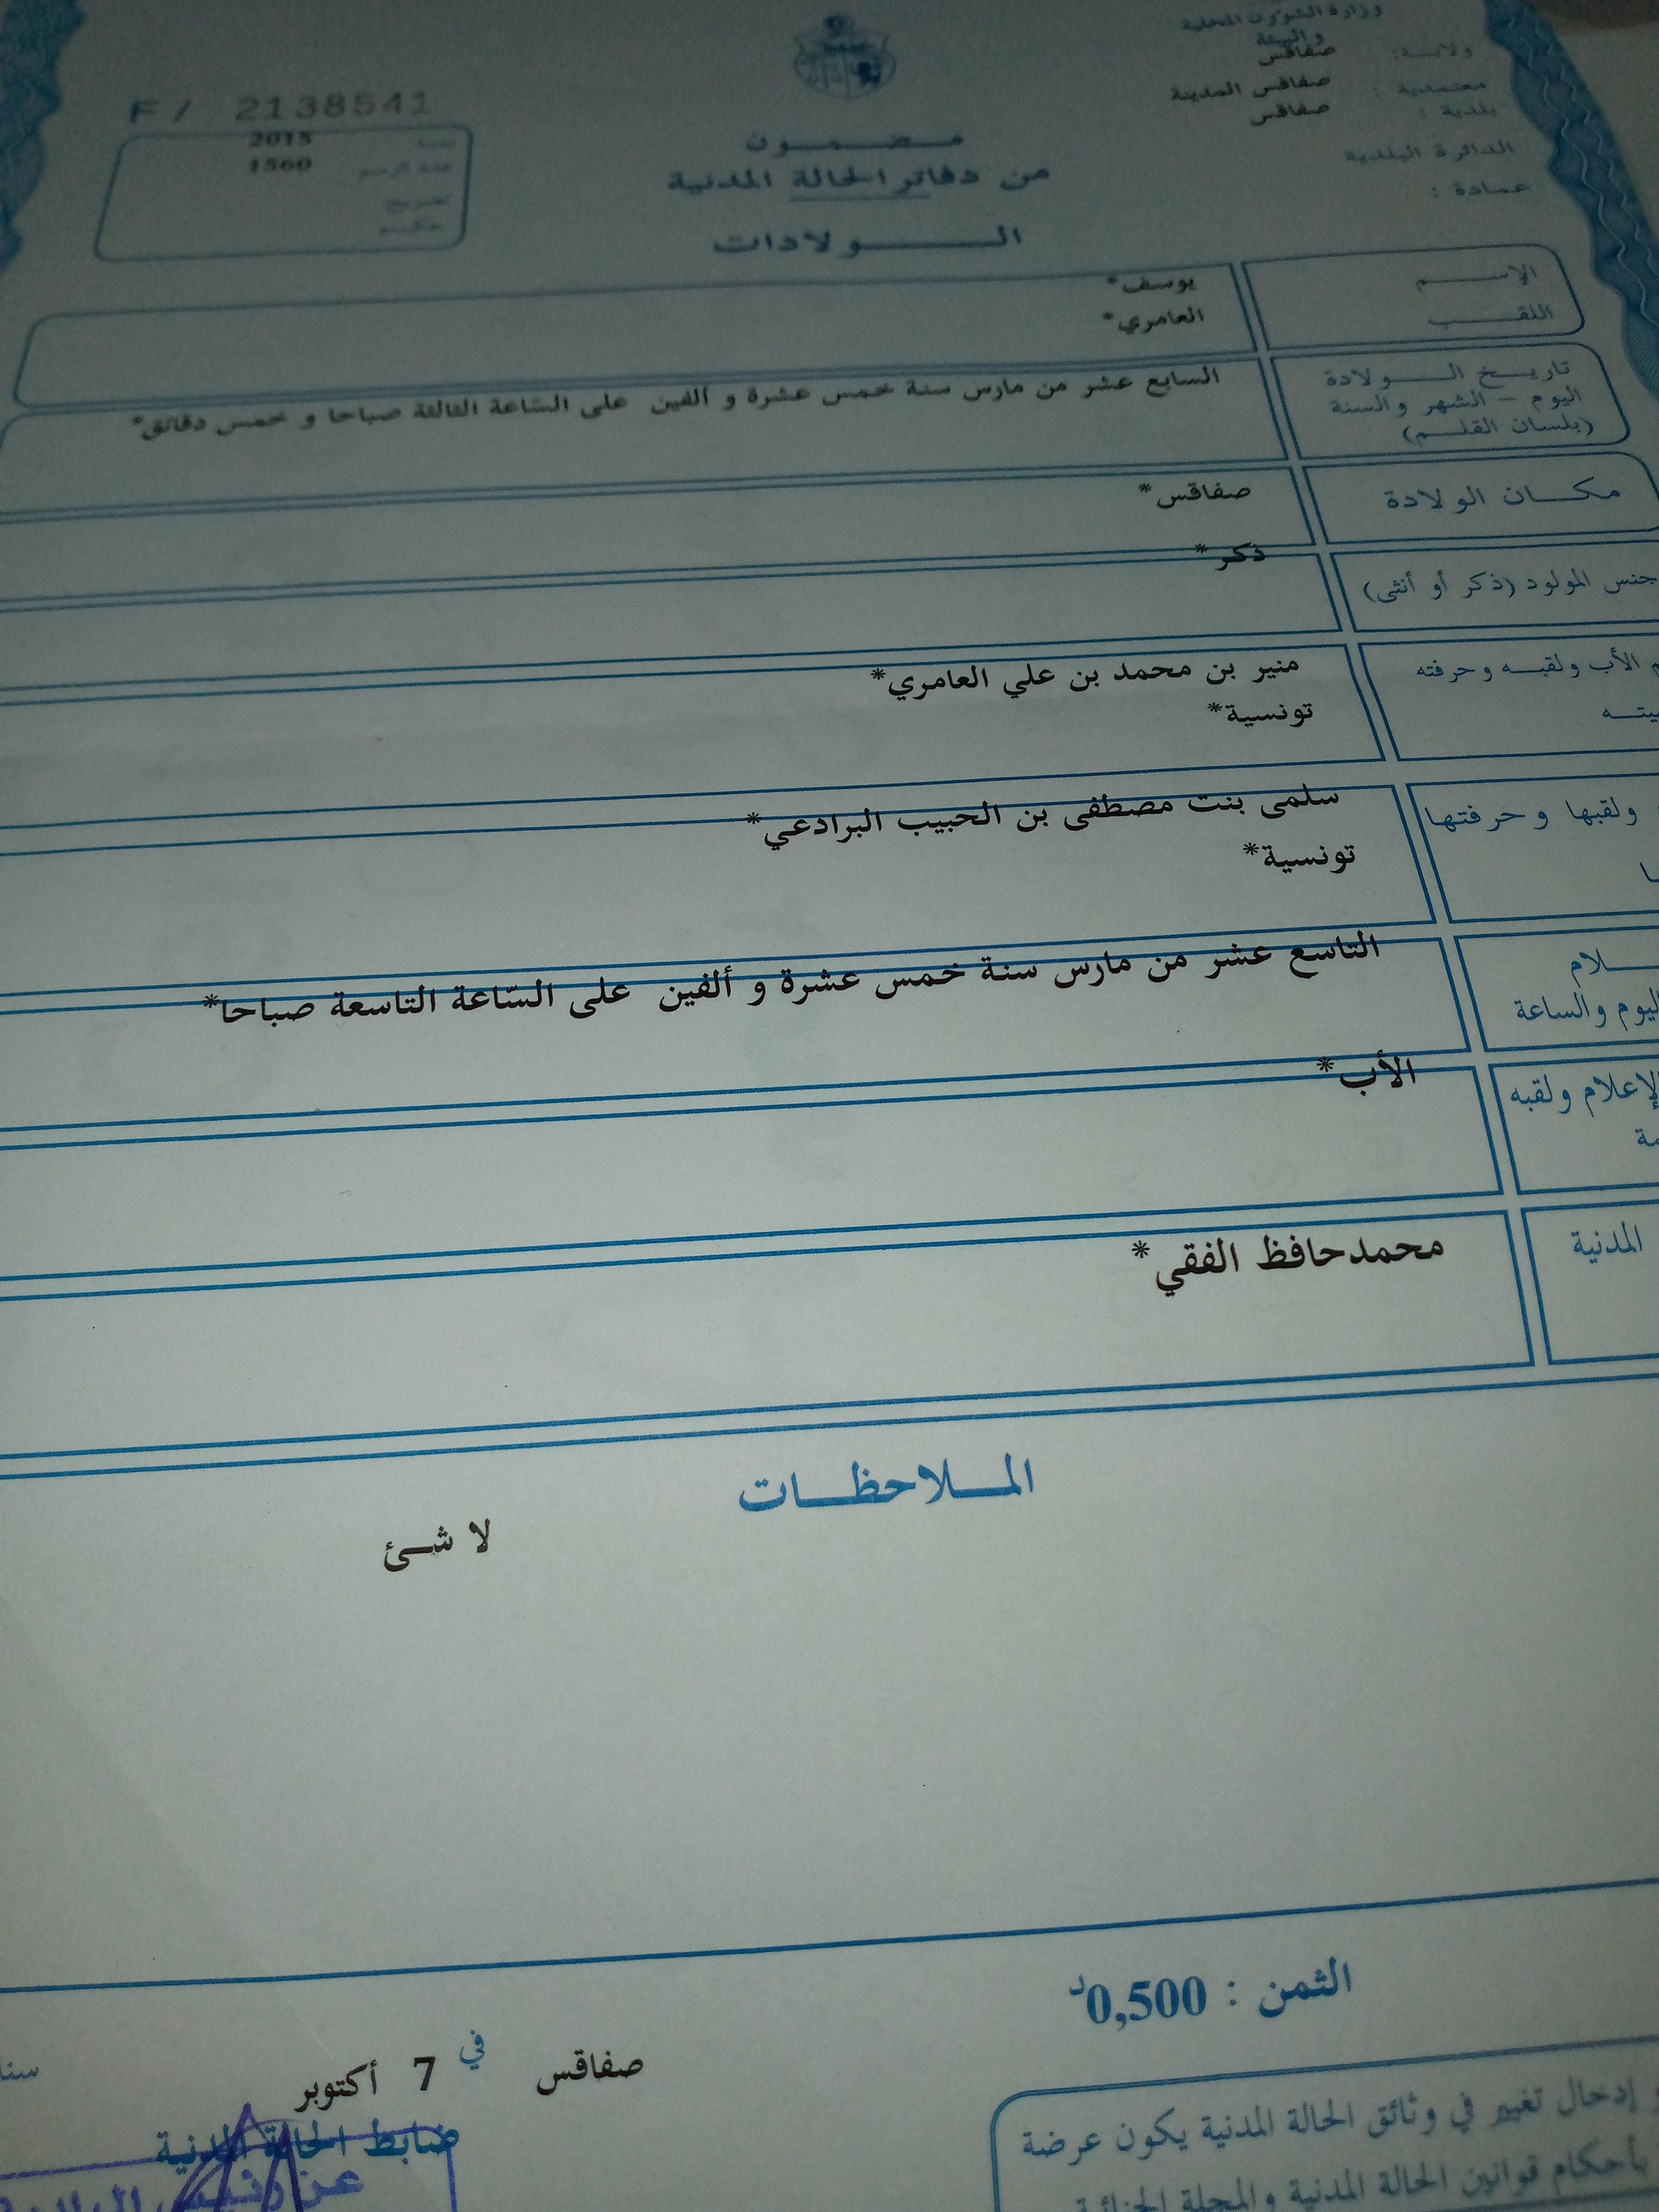 وزارة الشؤون المحلية
والبيئة
ولايــة: صفاقس
معتمدية : صفاقس المدينة
بلدية : صفاقس
الدائرة البلدية
عمادة :
F/ 2138541
سنة 2015
عدد الرسم 1560
تصريح
حكم
مضمون
من دفاتر الحالة المدنية
الولادات
الإسم يوسف*
اللقب العامري*
تاريخ الولادة
اليوم - الشهر والسنة
(بلسان القلم)
السابع عشر من مارس سنة خمس عشرة و ألفين على السّاعة الثالثة صباحا و خمس دقائق*
مكان الولادة صفاقس*
جنس المولود (ذكر أو أنثى) ذكر*
الأب ولقبه وحرفته منير بن محمد بن علي العامري*
تونسية*
ولقبها وحرفتها سلمى بنت مصطفى بن الحبيب البرادعي*
تونسية*
التاسع عشر من مارس سنة خمس عشرة و ألفين على السّاعة التاسعة صباحا*
اليوم والساعة
الإعلام ولقبه الأب*
المدنية محمدحافظ الفقي*
الملاحظات
لا شئ
الثمن : 0,500د
صفاقس في 7 أكتوبر
ضابط الحالة المدنية
عن رئيس
إدخال تغيير في وثائق الحالة المدنية يكون عرضة
بأحكام قوانين الحالة المدنية والمجلة الجزائية